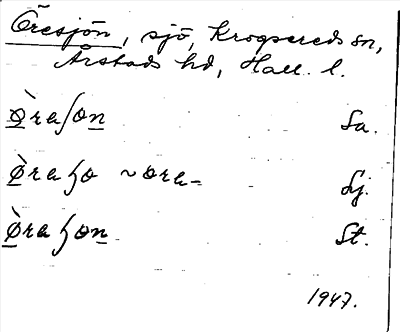 Öresjön, sjö, Krogsereds sn,
Årstads hd, Hall. l.
Ø̀raʃøn Sa.
Ø̀raɧø ~ øra- Lj.
Ø̀raɧøn St.
1947.